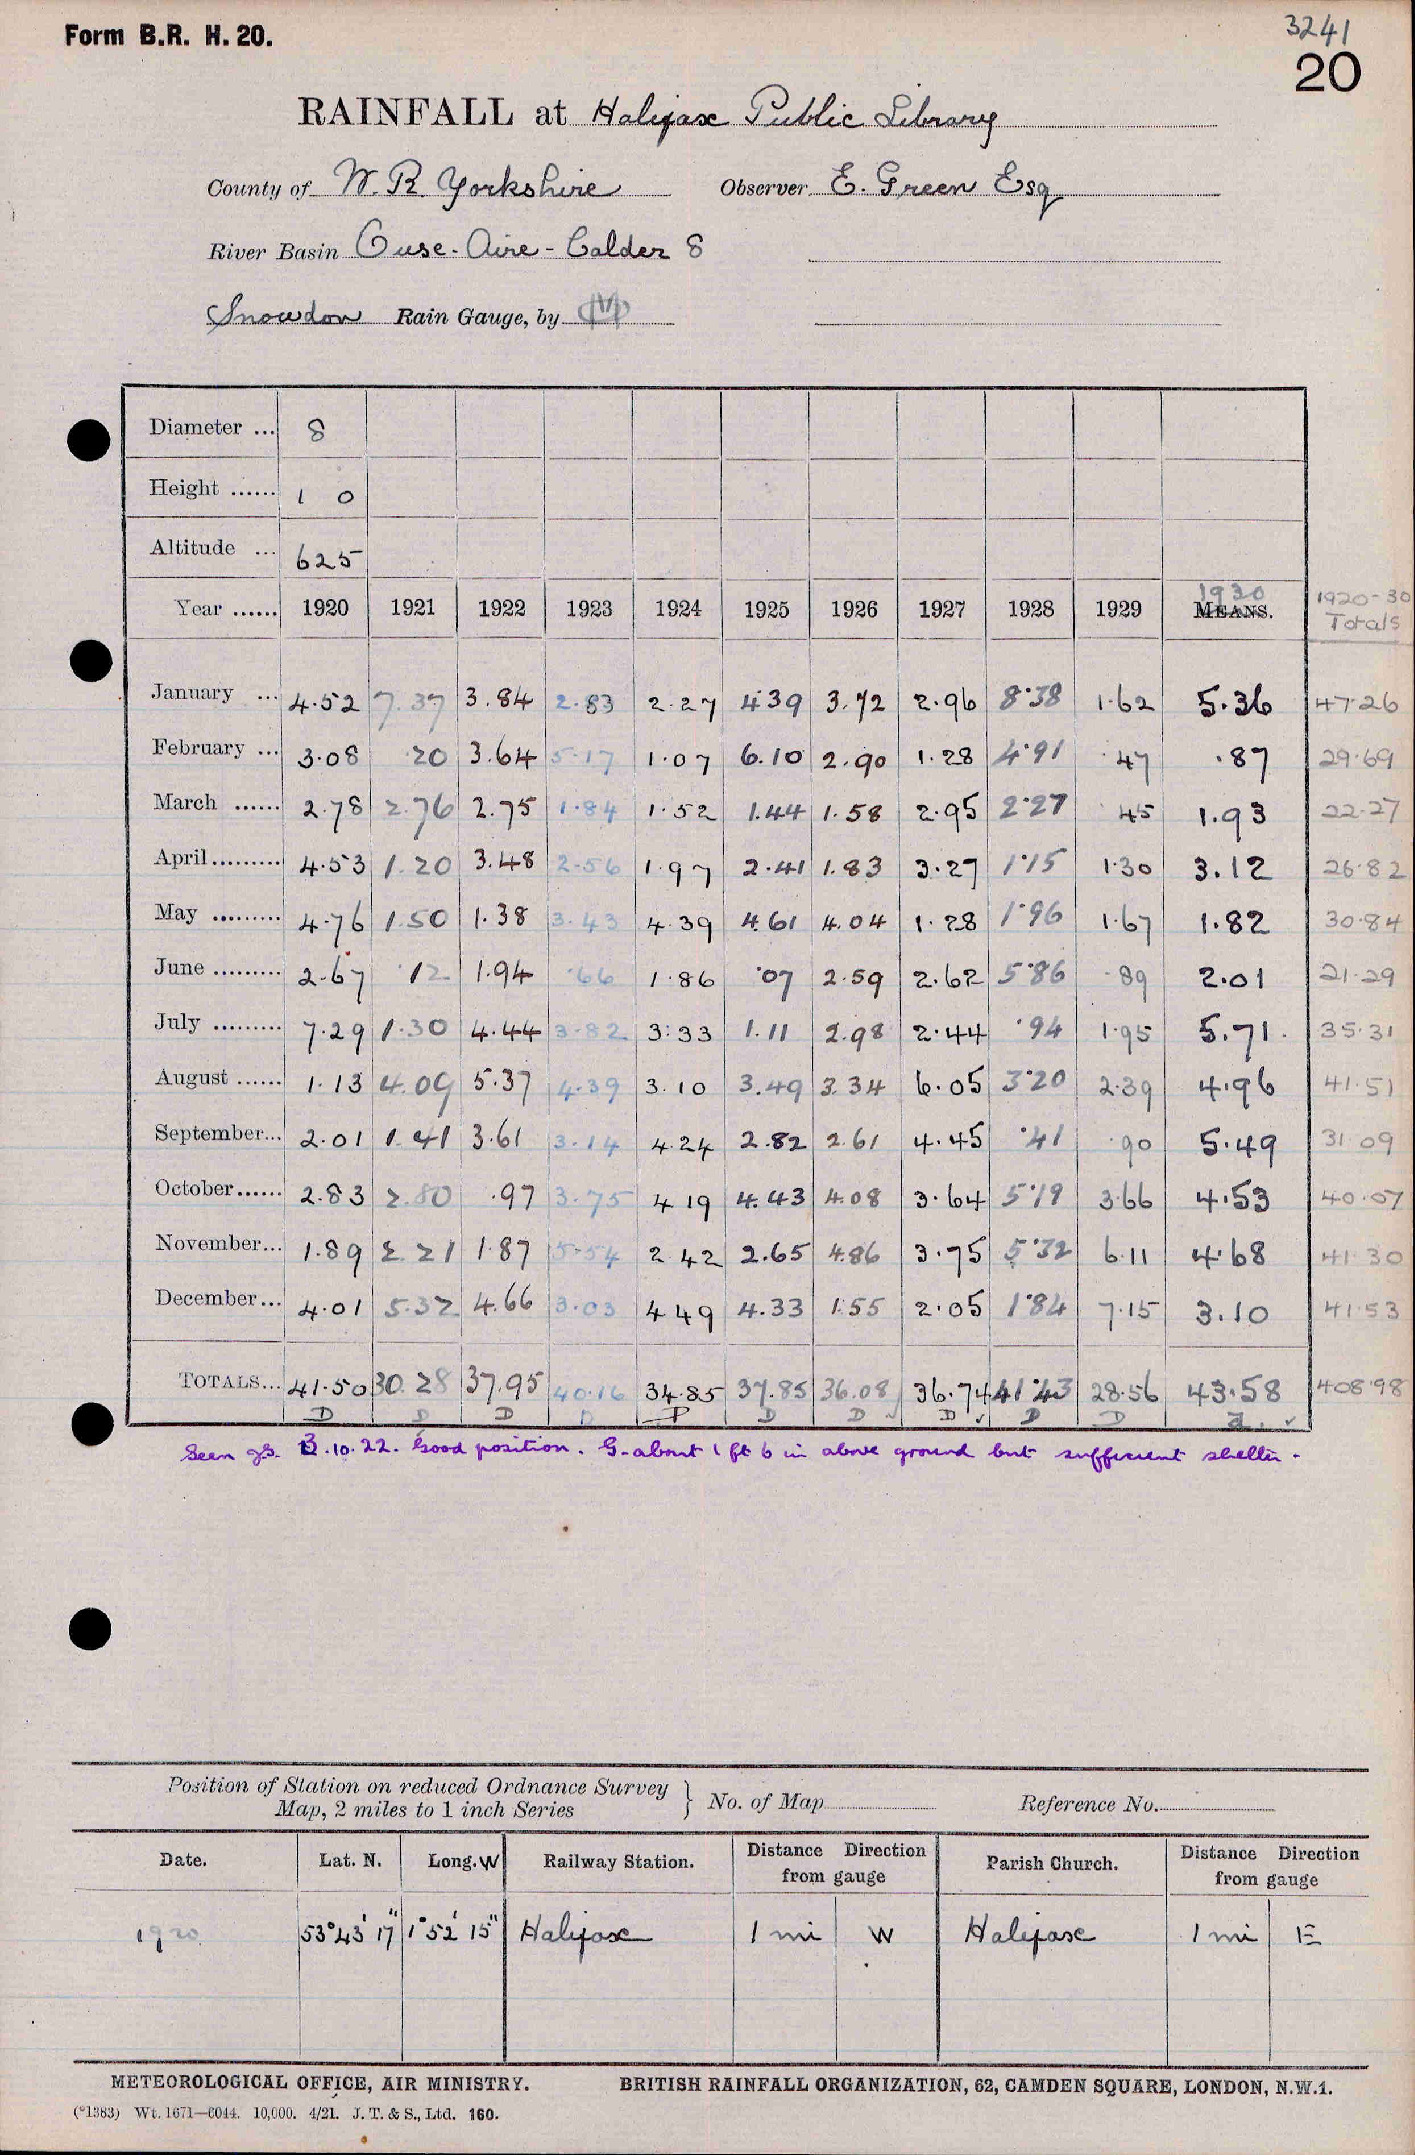 Form B.R. H. 20.
3241
20
RAINFALL at Halifax Public Library
County of W. R. Yorkshire Observer E. Green Esq
River Basin Ouse - Aire - Calder 8
Snowdon Rain Gauge, by
Diameter ... 8
Height ...... 1 0
Altitude ... 625
Year ...... 1920 1921 1922 1923 1924 1925 1926 1927 1928 1929 1930 MEANS. 1920-30 Totals
January ... 4.52 7.37 3.84 2.83 2.27 4.39 3.72 2.96 8.38 1.62 5.36 47.26
February ... 3.08 .20 3.64 5.17 1.07 6.10 2.90 1.28 4.91 .47 .87 29.69
March ...... 2.78 2.76 2.75 1.84 1.52 1.44 1.58 2.95 2.27 .45 1.93 22.27
April......... 4.53 1.20 3.48 2.56 1.97 2.41 1.83 3.27 1.15 1.30 3.12 26.82
May ......... 4.76 1.50 1.38 3.43 4.39 4.61 4.04 1.28 1.96 1.67 1.82 30.84
June ......... 2.67 .12 1.94 .66 1.86 .07 2.59 2.62 5.86 .89 2.01 21.29
July ......... 7.29 1.30 4.44 3.82 3.33 1.11 2.98 2.44 .94 1.95 5.71. 35.31
August ...... 1.13 4.09 5.37 4.39 3.10 3.49 3.34 6.05 3.20 2.39 4.96 41.51
September... 2.01 1.41 3.61 3.14 4.24 2.82 2.61 4.45 .41 .90 5.49 31.09
October...... 2.83 2.80 .97 3.75 4.19 4.43 4.08 3.64 5.19 3.66 4.53 40.07
November... 1.89 2.21 1.87 5.54 2.42 2.65 4.86 3.75 5.32 6.11 4.68 41.30
December... 4.01 5.32 4.66 3.03 4.49 4.33 1.55 2.05 1.84 7.15 3.10 41.53
TOTALS... 41.50 30.28 37.95 40.16 34.85 37.85 36.08 36.74 41.43 28.56 43.58 408.98
D D D D P D D ✓ D ✓ D D ✓
Seen 13.10.22. Good position. G. about 1 ft 6 in above ground but sufficient shelter.
Position of Station on reduced Ordnance Survey
Map, 2 miles to 1 inch Series } No. of Map Reference No.
Date. Lat. N. Long. W Railway Station. Distance Direction from gauge Parish Church. Distance Direction from gauge
1920 53° 43' 17" 1° 52' 15" Halifax 1 mi W Halifax 1 mi E
METEOROLOGICAL OFFICE, AIR MINISTRY. BRITISH RAINFALL ORGANIZATION, 62, CAMDEN SQUARE, LONDON, N.W.1.
(*1383) Wt. 1671—6044. 10,000. 4/21. J. T. & S., Ltd. 160.